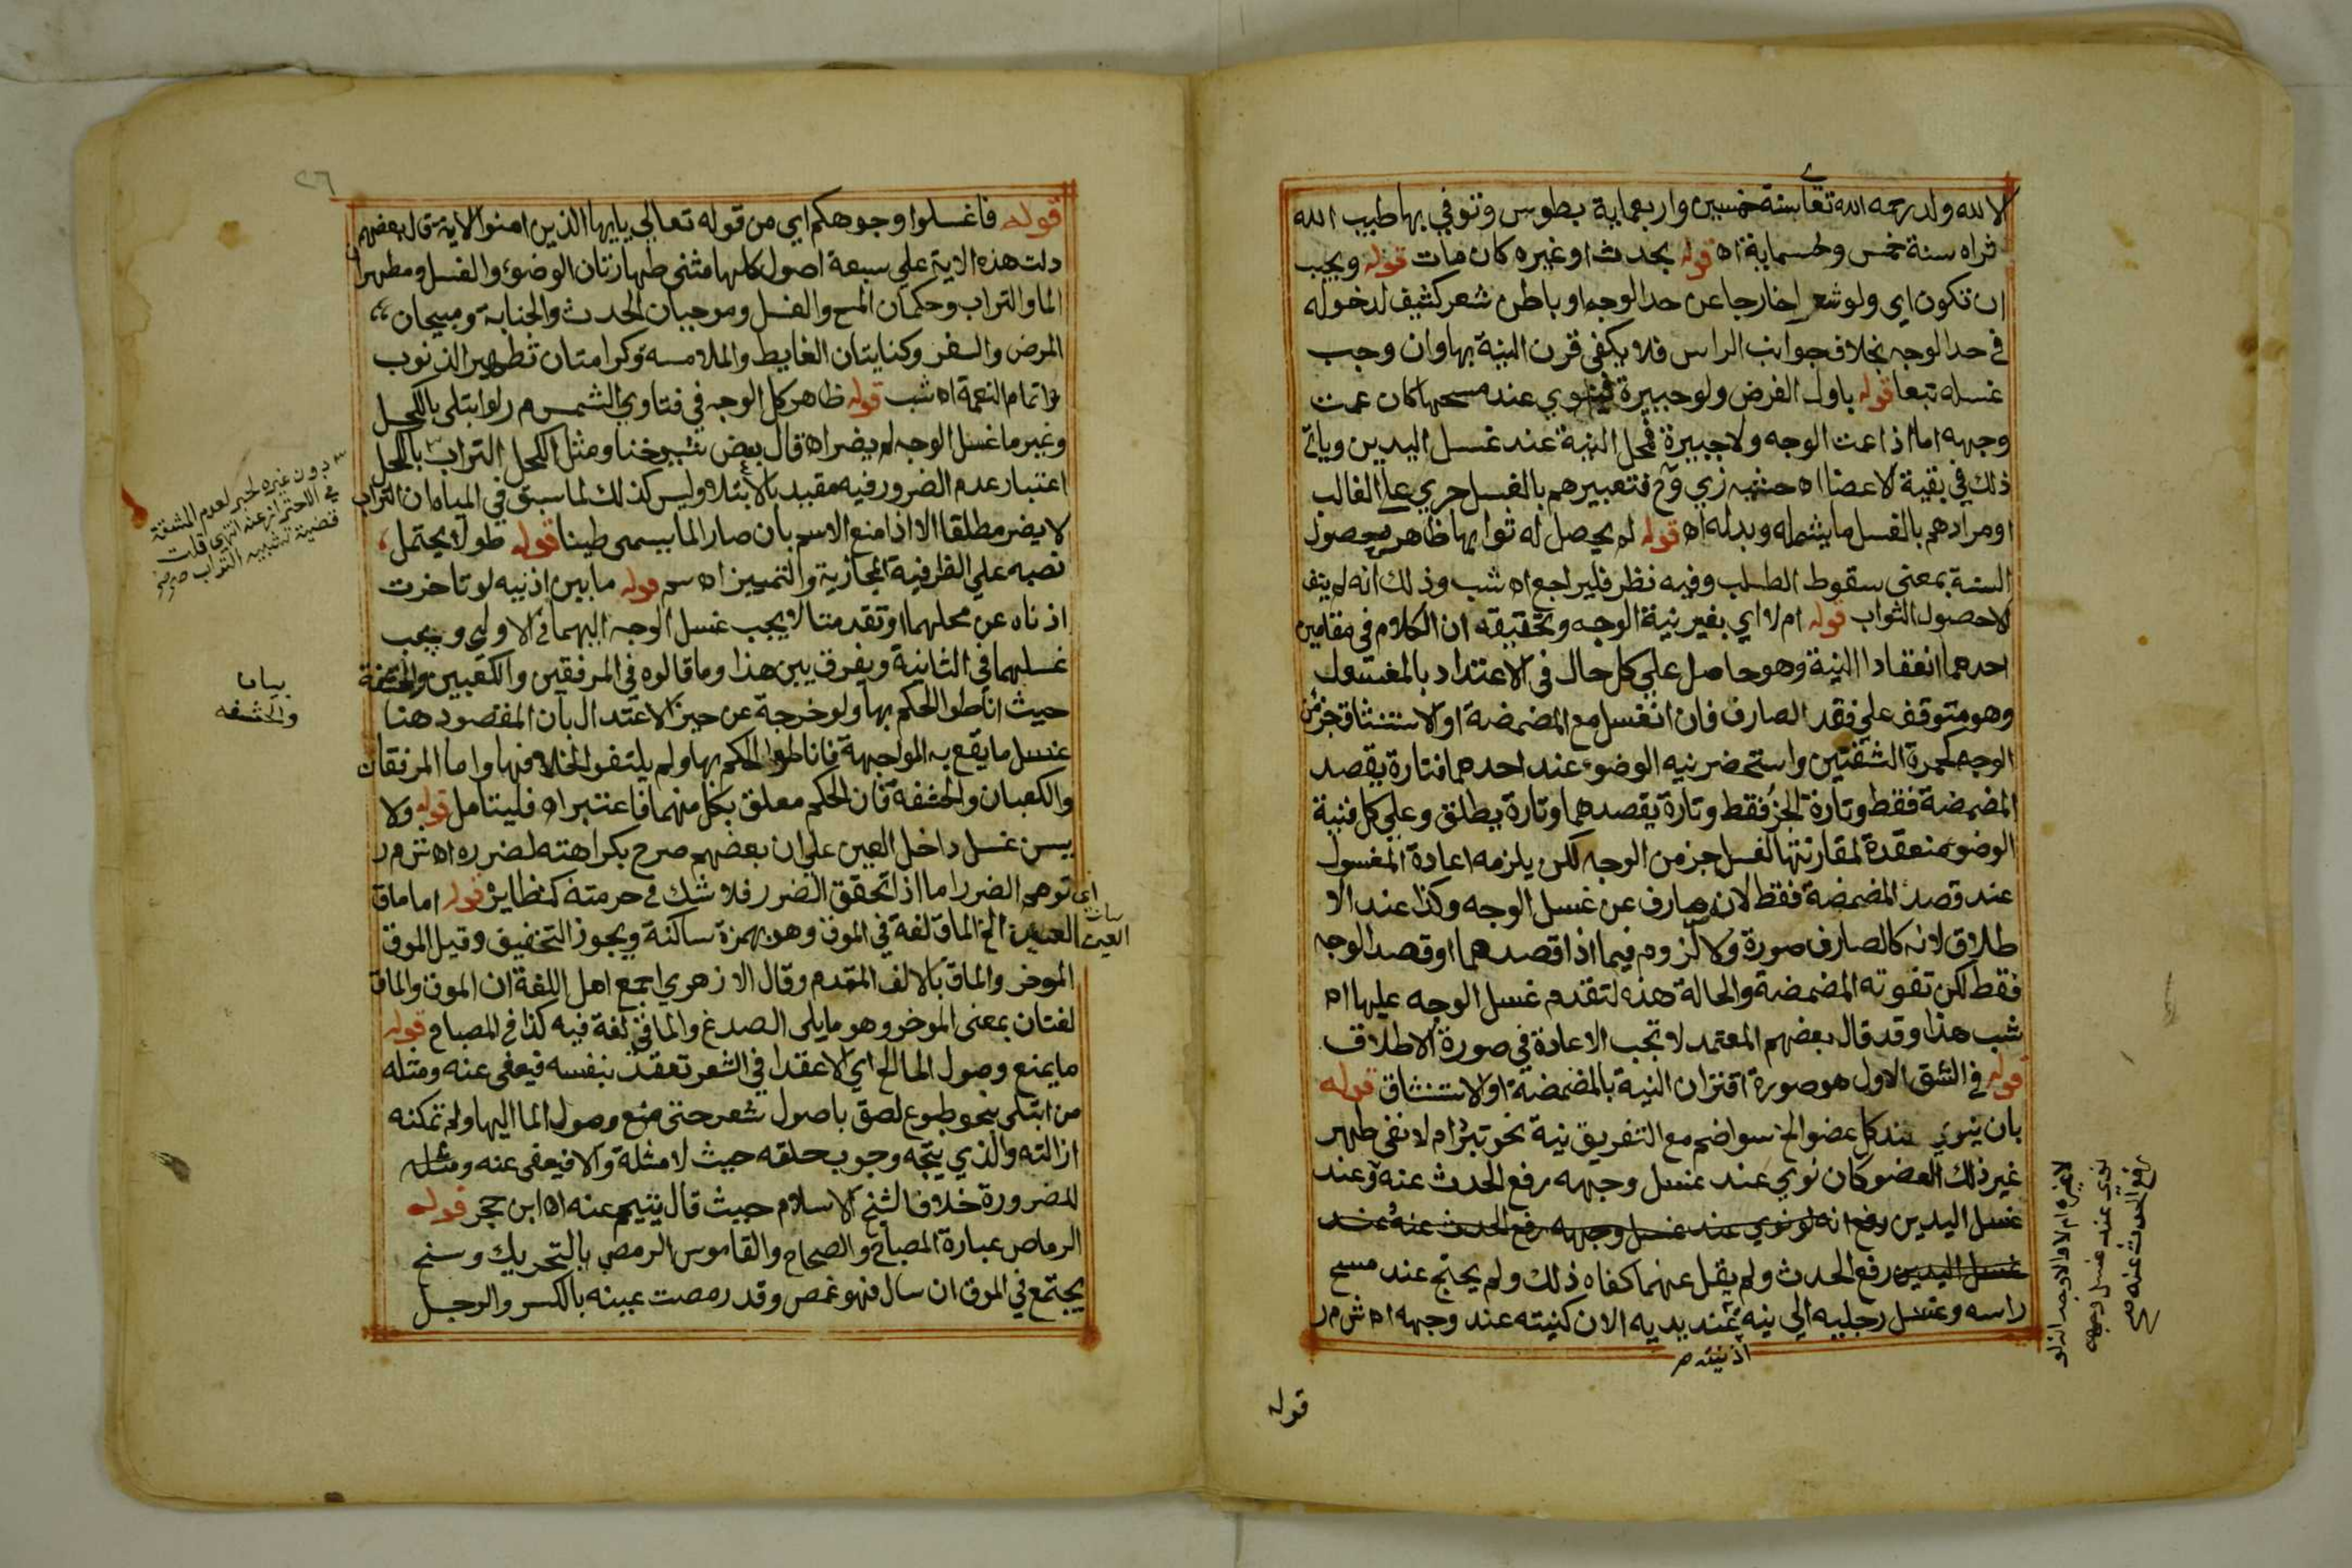 لالله ولد رحمه الله تعا سنة خمسين واربعماية بطوس وتوفي بها طيب الله
ثراه سنة خمس وخمسماية اه قوله بحدث او غيره كان مات قوله ويجب
ان تكون اي ولو شعر اخارجا عن حد الوجه او باطن شعر كثيف لدخوله
في حد الوجه بخلاف جوانب الراس فلا يكفي قرن النية بها وان وجب
غسله تبعا قوله باول الفرض ولو جبيرة فينوي عند مسحها كان عمت
وجهه اما اذا عمت الوجه ولا جبيرة فمحل النية عند غسل اليدين وياتي
ذلك في بقية الاعضا اه زي وح فتعبيرهم بالغسل جري علي الغالب
اومرادهم بالغسل ما يشمله وبدله اه قوله لم يحصل له ثوابها ظاهر حصول
السنة بمعنى سقوط الطلب وفيه نظر فليراجع اه شب وذلك انه لم ينف
الاحصول الثواب قوله ام لا اي بغير نية الوجه وتحقيقه ان الكلام في مقامين
احدهما انعقاد النية وهو حاصل علي كل حال في الاعتداد بالمغسول
وهو متوقف علي فقد الصارف فان انغسل مع المضمضة او الاستنشاق جزء من
الوجه كحمرة الشفتين واستحضر نيه الوضوء عند احدهما فتارة يقصد
المضمضة فقط وتارة الجزء فقط وتارة يقصدهما وتارة يطلق وعلي كل فنية
الوضوء منعقدة لمقارنتها لغسل جز من الوجه لكن يلزمه اعادة المغسول
عند قصد المضمضة فقط لانه صارف عن غسل الوجه وكذا عند الا
طلاق لانه كالصارف صورة ولا لزوم فيما اذا قصدهما او قصد الوجه
فقط لكن تفوته المضمضة والحالة هذه لتقدم غسل الوجه عليها اه
شب هذا وقد قال بعضهم المعتمد لا تجب الاعادة في صورة الاطلاق
قوله في الشق الاول هو صورة اقتران النية بالمضمضة او الاستنشاق قوله
بان ينوي عند كل عضو الخ سواضم مع التفريق نية نحو تبرد ام لا نفي طهر
غير ذلك العضو كان نوي عند غسل وجهه رفع الحدث عنه وعند
غسل اليدين رفع انه لو نوي عند غسل وجهه رفع الحدث عنه وعند
غسل اليدين رفع الحدث ولم يقل عنهما كفاه ذلك ولم يحتج عند مسح
راسه وغسل رجليه الي نيه عند يديه الان كنيته عند وجهه اه ش م ر
اذ نيته
نوي عند غسل وجهه
رفع الحدث عنه
قوله
٢٦
قوله فاغسلوا وجوهكم اي من قوله تعالي يايها الذين امنوا الاية قال بعضهم
دلت هذه الاية علي سبعة اصول كلها مثنى طهارتان الوضوء والغسل ومطهران
الما والتراب وحكمان المسح والغسل وموجبان الحدث والجنابة ومبيحان
المرض والسفر وكنايتان الغايط والملامسة وكرامتان تطهير الذنوب
واتمام النعمة اه شب قوله ظاهر كل الوجه في فتاوي الشمس م ر لو ابتلى بالكحل
وغير ما غسل الوجه لم يضر اه قال بعض شيوخنا ومثل الكحل التراب بالكحل
اعتبار عدم الضرور فيه مقيد بالابتلاء وليس كذلك لما سبق في المياه ان التراب
لا يضر مطلقا الا اذا منع الاسم بان صار الما يسمى طينا قوله طولا يحتمل
نصبه علي الظرفية المجازية والتمييز اه سم قوله ما بين اذنيه لو تاخرت
اذناه عن محلهما او تقدمتا لا يجب غسل الوجه اليهما في الاولى ويجب
غسلهما في الثانية ويفرق بين هذا وما قالوه في المرفقين والكعبين والحشفة
حيث اناطوا الحكم بها ولو خرجة عن حيز الاعتدال بان المقصود هنا
غسل ما يقع به المواجهة فاناطوا الحكم بها ولم يلتفوا لخلافها واما المرفقان
والكعبان والحشفة فان الحكم معلق بكل منهما فاعتبر اه فليتامل قوله ولا
يسن غسل داخل العين علي ان بعضهم صرح بكراهته لضرره اه ش م ر
اي توهم الضرر اما اذا تحقق الضرر فلا شك في حرمته كنظايره قوله اما ماق
العين الخ الماق لغة في الموق وهو بهمزة ساكنة ويجوز التخفيف وقيل الموق
الموخر والماق بالالف المقدم وقال الازهري اجمع اهل اللغة ان الموق والماق
لغتان بمعنى الموخر وهو ما يلى الصدغ والماقي لغة فيه كذا في المصباح قوله
ما يمنع وصول الما الخ اي لا عقدا في الشعر تعقد بنفسه فيعفى عنه ومثله
من ابتلى بنحو طبوع لصق باصول شعر حتى منع وصول الما اليها ولم تمكنه
ازالته والذي يتجه وجوب حلقه حيث لا مثلة والا فيعفى عنه ومثله
للضرورة خلافا لشيخ الاسلام حيث قال يتيمم عنه اه ابن حجر قوله
الرماص عبارة المصباح والصحاح والقاموس الرمص بالتحريك وسخ
يجتمع في الموق ان سال فهو غمص وقد رمصت عينه بالكسر والرجل
دون غيره لعدم المشقة
في الاحتراز عنه انتهى قلت
قضية تشبيه التراب
بياما
والحشفه
العين